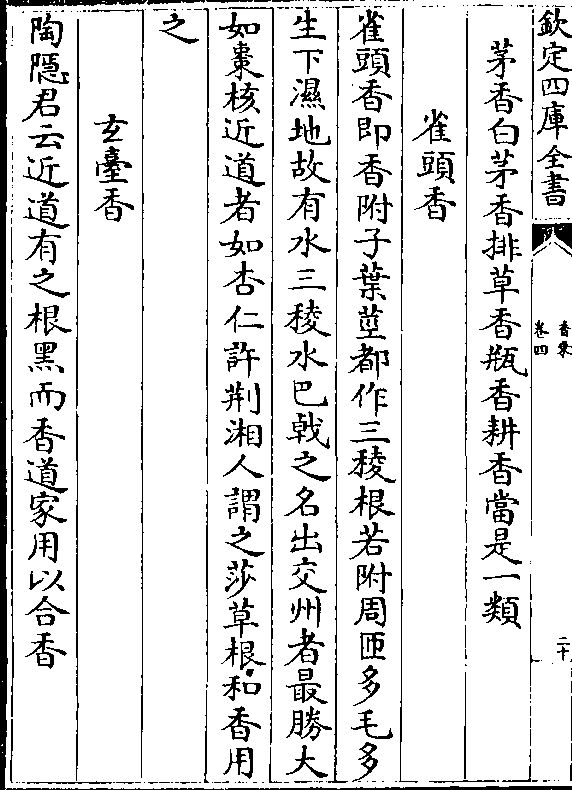 欽定四庫全書
香乘
卷四
二十
茅香白茅香排草香瓶香耕香當是一類
雀頭香
雀頭香即香附子葉莖都作三稜根若附周匝多毛多
生下濕地故有水三稜水巴戟之名出交州者最勝大
如棗核近道者如杏仁許荆湘人謂之莎草根和香用
之
玄臺香
陶隱君云近道有之根黑而香道家用以合香